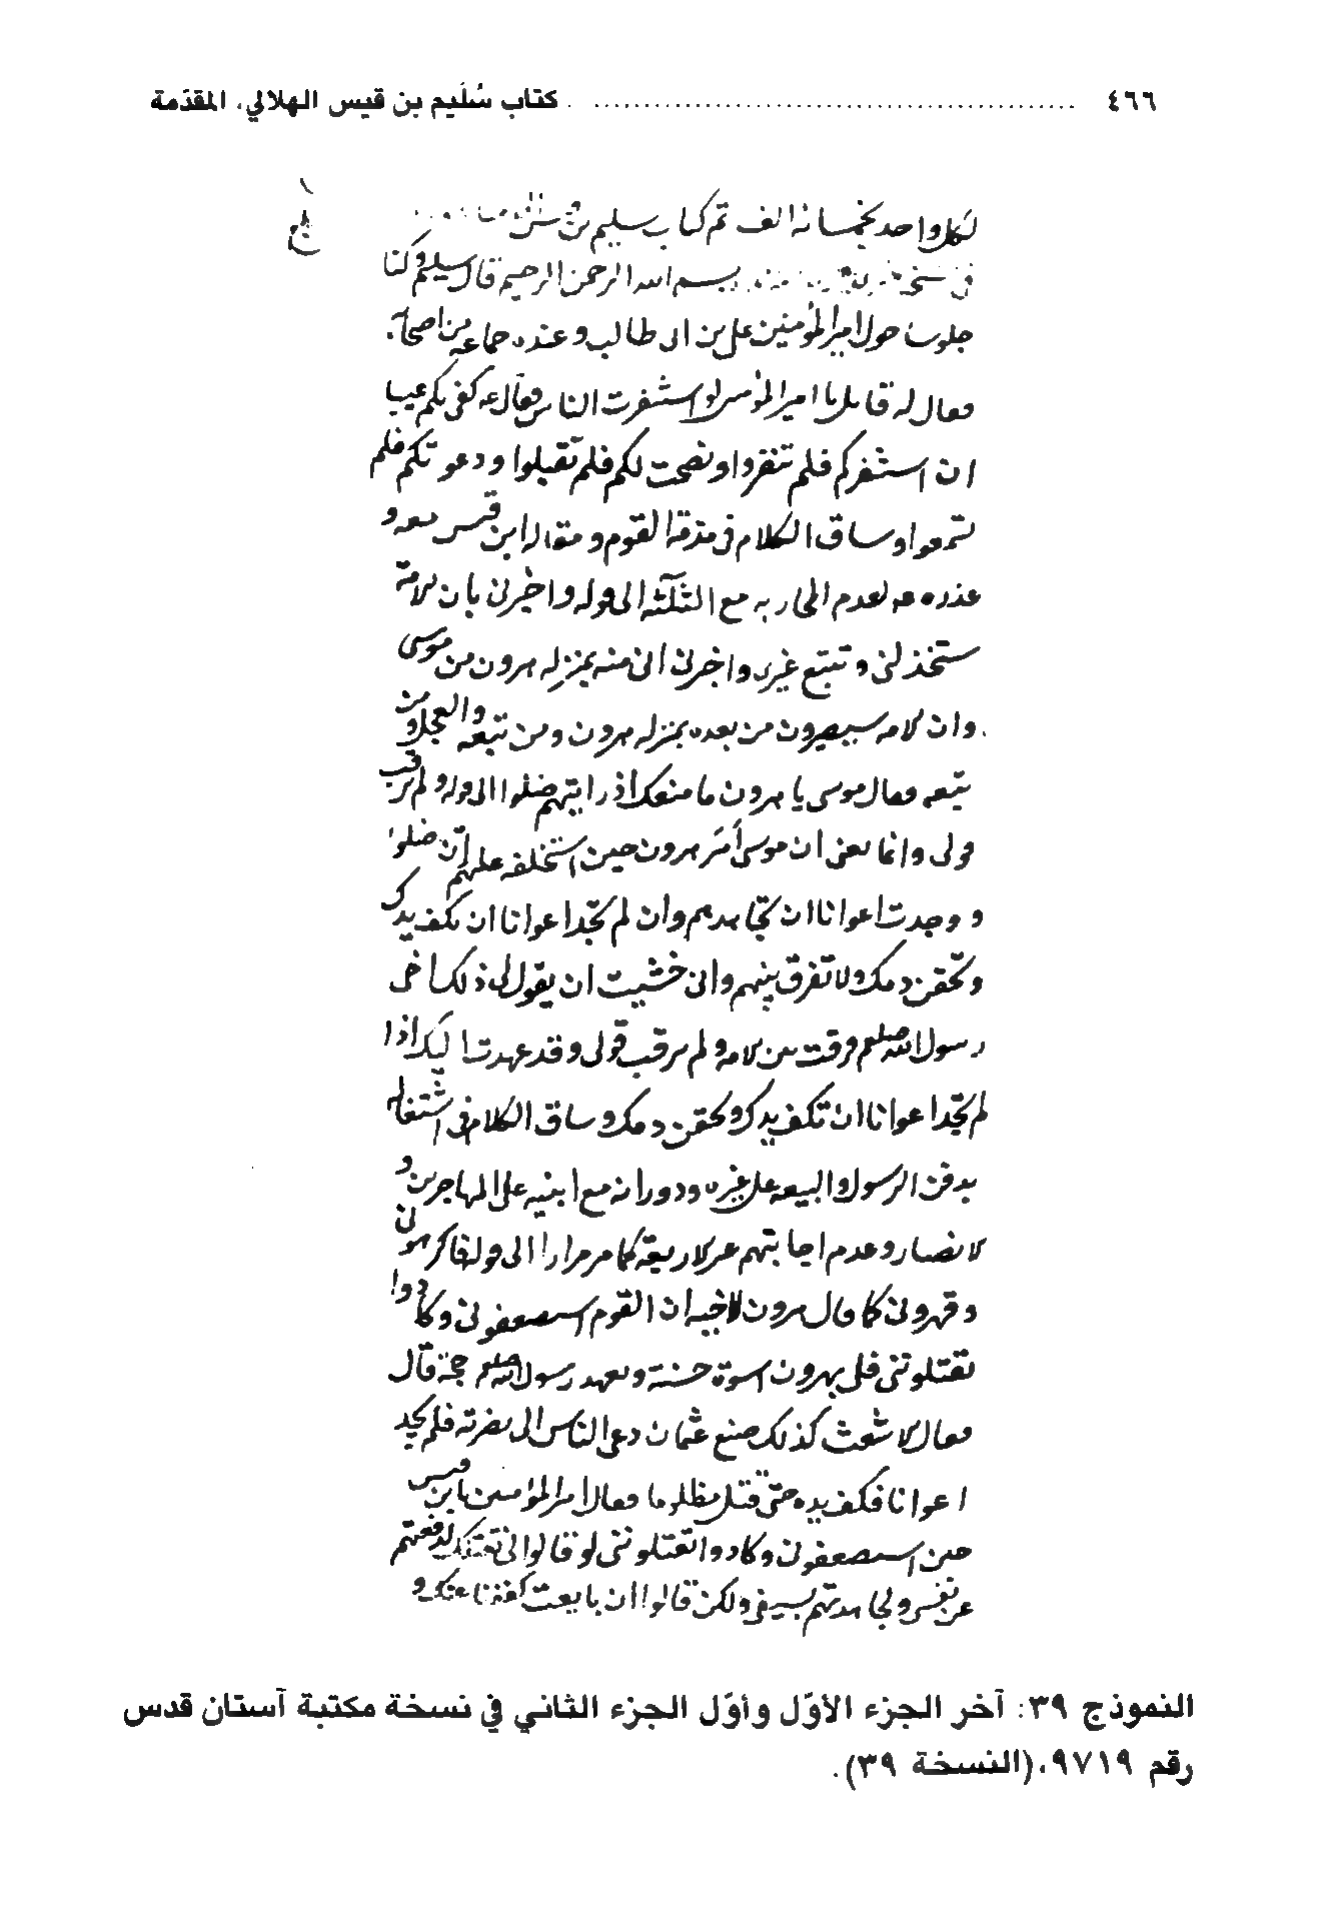 ٤٦٦ ........................................ كتاب سُلَيم بن قيس الهلالي، المقدّمة
لكل واحد بخمسمائة الف تم كتاب سليم بن
بسم الله الرحمن الرحيم قال سليم وكنا
جلوسا حول امير المؤمنين على بن ابى طالب و عنده جماعه من اصحابه
فقال له قايل يا امير المؤمنين لو استنفرت الناس فقال
ان استنفركم فلم تنفروا و نصحت لكم فلم تقبلوا و دعوتكم فلم
تسمعوا وساق الكلام فى مذمة القوم و مقاله ابن قيس معه و
عذره لعدم المحاربه مع الثلثه الى قوله واخبرنى بان الامة
ستخذلنى و تتبع غيرى واخبرنى انى منه بمنزله هرون من موسى
وان الامه سيصيرون من بعده بمنزله هرون ومن تبعه والعجل و من
يتبعه فقال موسى يا هرون ما منعك اذ رايتهم ضلوا الى قوله ولم ترقب
قولى وانما يعنى ان موسى أمَر هرون حين استخلفه عليهم ان ضلوا
و وجدت اعوانا ان تجاهدهم وان لم تجد اعوانا ان تكف يدك
وتحقن دمك ولا تفرق بينهم وانى خشيت ان يقول لى ذلك اخى
رسول الله صلعم فرقت بين الامه ولم ترقب قولى وقد عهدت اليك اذا
لم تجد اعوانا ان تكف يدك وتحقن دمك وساق الكلام فى اشتغاله
بدفن الرسول والبيعه على غيره ودورانه مع ابنيه على المهاجرين و
الانصار وعدم اجابتهم غير الاربعة كما مر مرارا الى قوله فاكرهونى
وقهرونى كما قال هرون لاخيه ان القوم استضعفونى وكادوا
يقتلوننى فلى بهرون اسوة حسنة وبعهد رسول الله صلعم حجة قال
فقال الاشعث كذلك صنع عثمان دعى الناس الى نصرته فلم يجد
اعوانا فكف يده حتّى قتل مظلوما فقال امير المؤمنين يابن قيس
حين استضعفونى وكادوا يقتلوننى لو قالوا لى نقتلك
عن نفسى ولجاهدتهم بسيفى ولكن قالوا ان بايعت كففنا عنك و
النموذج ٣٩: آخر الجزء الأوّل وأوّل الجزء الثاني في نسخة مكتبة آستان قدس
رقم ٩٧١٩، (النسخة ٣٩).